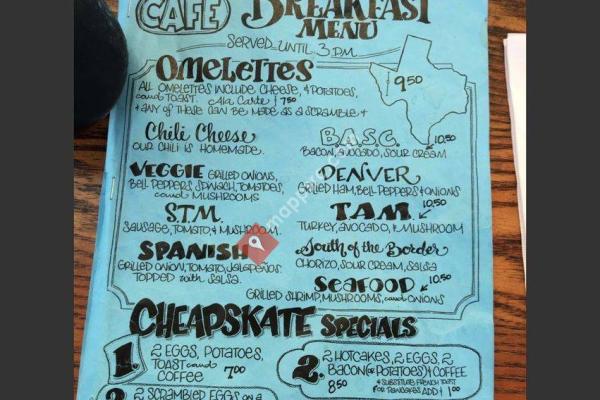 CAFÉ
BREAKFAST
MENU
SERVED UNTIL 3 PM
OMELETTES
9.50
ALL OMELETTES INCLUDE CHEESE, POTATOES,
and TOAST. Ala Carte 7.50
& ANY OF THESE CAN BE MADE AS A SCRAMBLE
Chili Cheese
OUR CHILI IS HOMEMADE.
B.A.S.C. 10.50
BACON, AVOCADO, SOUR CREAM
VEGGIE GRILLED ONIONS,
BELL PEPPERS, SPINACH, TOMATOES,
and MUSHROOMS
DENVER
GRILLED HAM, BELL PEPPERS & ONIONS
S.T.M.
SAUSAGE, TOMATO, & MUSHROOM.
T.A.M. 10.50
TURKEY, AVOCADO, & MUSHROOM
SPANISH
GRILLED ONION, TOMATO, JALAPEÑOS
TOPPED with SALSA.
South of the Border
CHORIZO, SOUR CREAM, SALSA
SEAFOOD 10.50
GRILLED SHRIMP, MUSHROOMS, and ONIONS
CHEAPSKATE SPECIALS
1. 2 EGGS, POTATOES,
TOAST and
COFFEE 7.00
2. 2 HOTCAKES, 2 EGGS, 2
BACON (or POTATOES) & COFFEE
8.50 & SUBSTITUTE FRENCH TOAST
FOR PANCAKES ADD $1.00
2 SCRAMBLED EGGS ON A